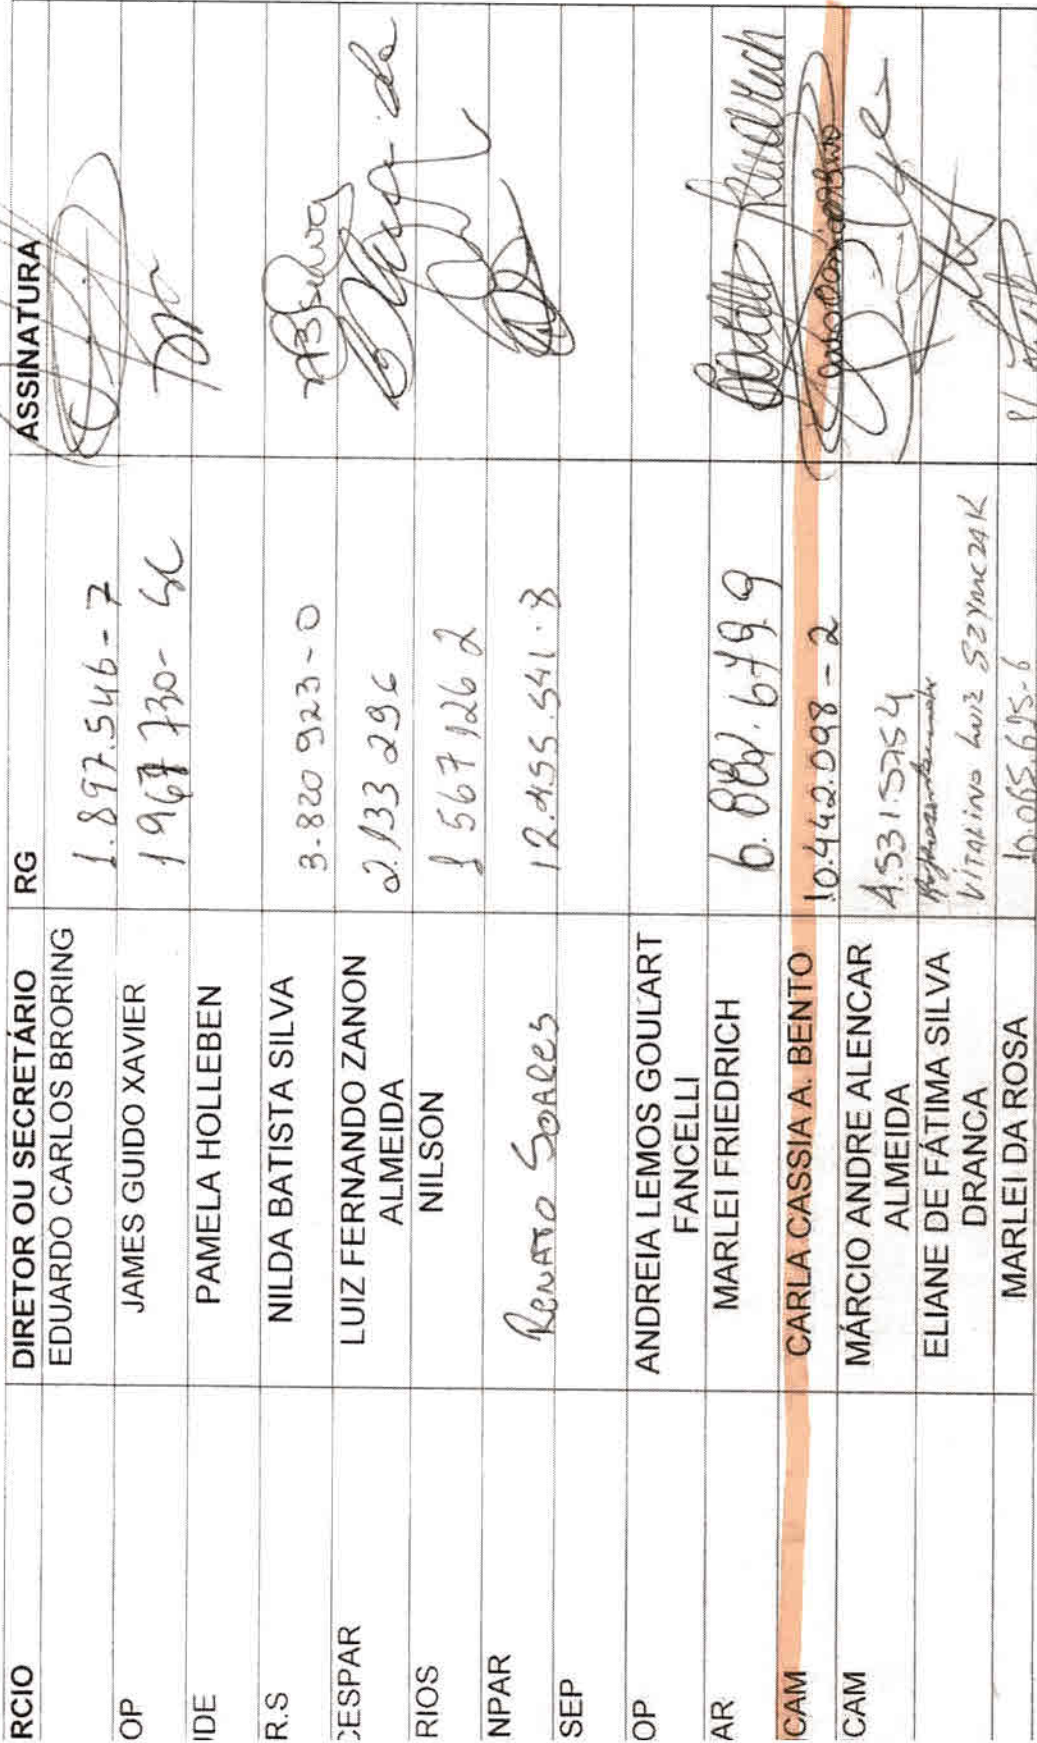 RCIO DIRETOR OU SECRETÁRIO RG ASSINATURA
EDUARDO CARLOS BRORING 1.897.546-7
OP JAMES GUIDO XAVIER 1967730-SC
IDE PAMELA HOLLEBEN
R.S NILDA BATISTA SILVA 3.820923-0
CESPAR LUIZ FERNANDO ZANON 2.133296
ALMEIDA
RIOS NILSON 1567126 2
NPAR Renato Soares 12.455.541.8
SEP
OP ANDREIA LEMOS GOULART
FANCELLI
AR MARLEI FRIEDRICH 6.882.679.9
CAM CARLA CASSIA A. BENTO 10.442.098-2
CAM MÁRCIO ANDRE ALENCAR 4.531.575-4
ALMEIDA
ELIANE DE FÁTIMA SILVA
DRANCA Vitalino Luiz
MARLEI DA ROSA 10.065.695-6